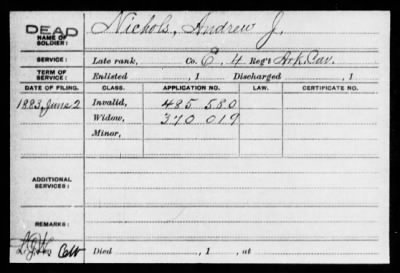 DEAD
NAME OF SOLDIER: Nichols, Andrew J.
SERVICE: Late rank, Co. E, 4 Reg't Ark Cav.
TERM OF SERVICE: Enlisted , 1 Discharged , 1
DATE OF FILING. CLASS. APPLICATION NO. LAW. CERTIFICATE NO.
1883, June 2 Invalid, 485 580
Widow, 370 019
Minor,
ADDITIONAL SERVICES:
REMARKS:
Died , 1 , at